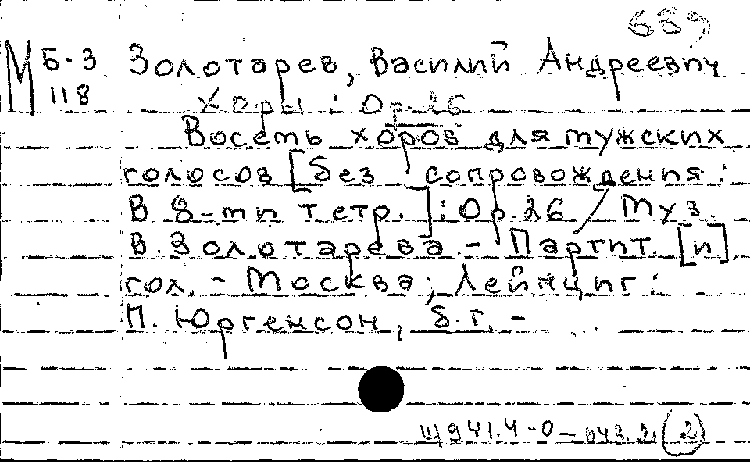 689
М Б-3 Золотарев, Василий Андреевич
118
Хоры : Ор. 26
Восемь хоров для мужских
голосов [без сопровождения :
В 8-ми тетр.] : Ор. 26 / Муз.
В. Золотарева. - Партит. [и]
гол. - Москва ; Лейпциг :
П. Юргенсон, б. г. -
Щ941.4-0-643.2 (2)